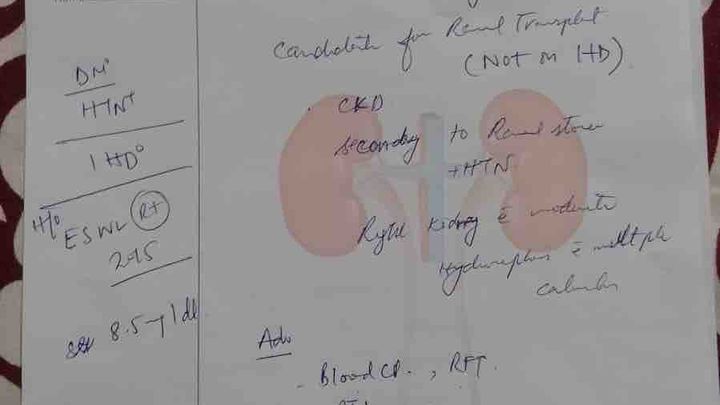 Candidate for Renal Transplant
(NOT on HD)
DM°
HTN+
IHD°
H/o
ESWL Rt
2015
8.5 mg/dl
CKD
secondary to Renal stones
+HTN
Right Kidney c̄ moderate
Hydronephrosis c̄ multiple
calculus
Adv
- Blood CP. , RFT.